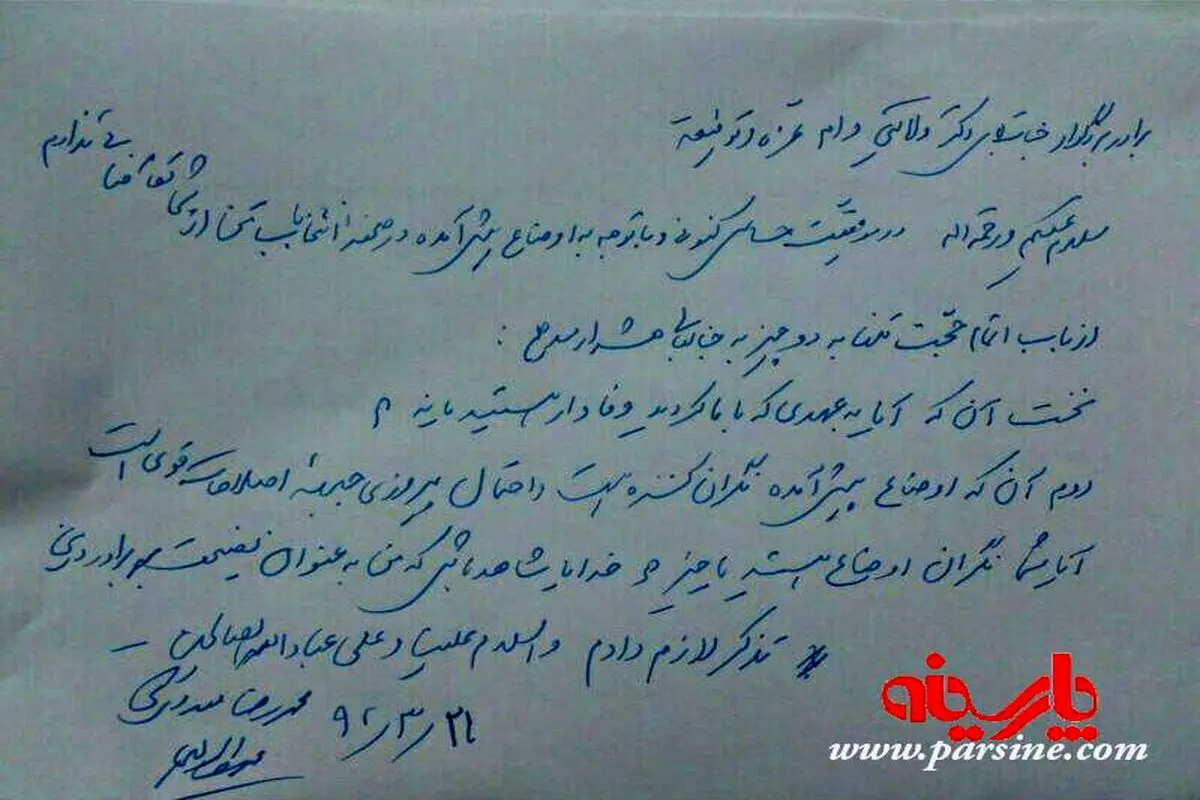 برادر بزرگوار جناب آقای دکتر ولایتی دام عزه و توفیقه
سلام علیکم و رحمه اله در موقعیت حساس کنونی و با توجه به اوضاع پیش آمده در صحنه انتخابات تنها از شما تقاضایی ندارم
از باب اتمام حجت تنها به دو چیز به جنابعالی هشدار میدهم :
نخست آن که آیا به عهدی که با ما کردید وفادار هستید یا نه ؟
دوم آن که اوضاع پیش آمده نگران کننده است و احتمال پیروزی جبهه اصلاحات قوی است
آیا شما نگران اوضاع هستید یا خیر ؟ خدایا شاهد باش که من به عنوان نصیحت به برادر دینی
تذکر لازم دادم والسلام علینا و علی عباد الله الصالحین
محمدرضا مهدوی کنی
۹۲/۳/۲۱
پارسینه
www.parsine.com